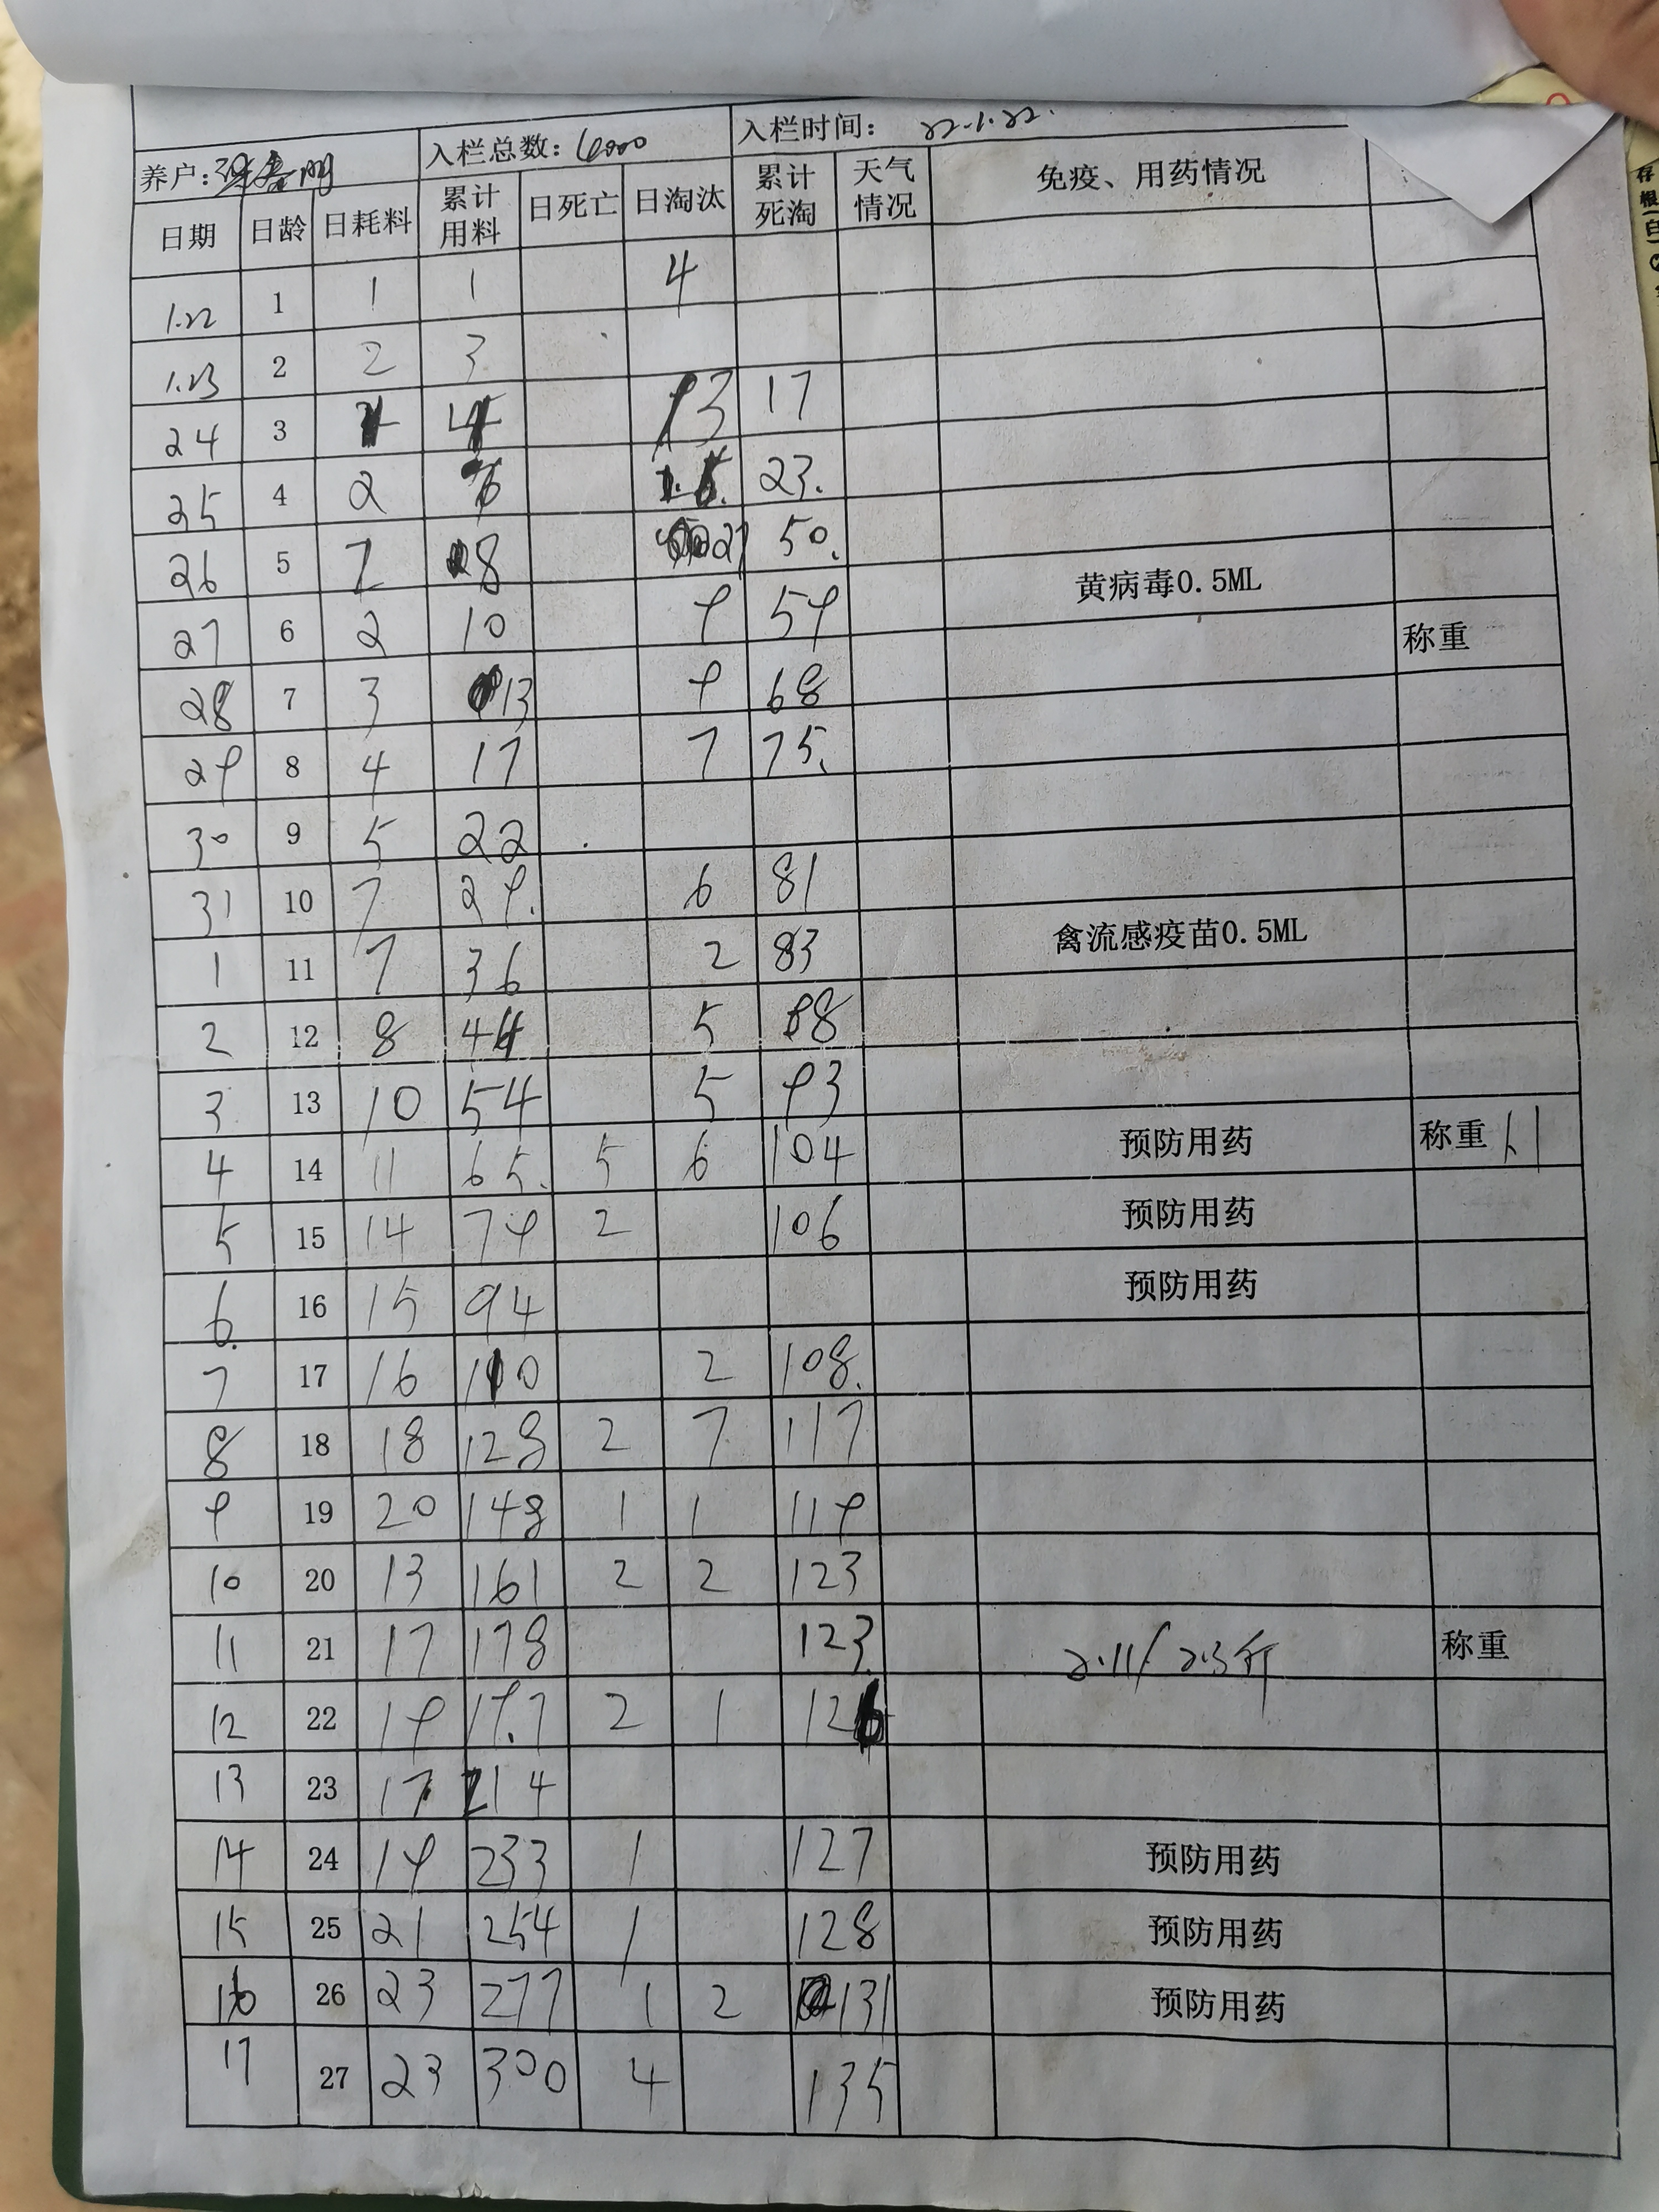 养户: 入栏总数: 6000 入栏时间: 22.1.22.
日期 日龄 日耗料 累计用料 日死亡 日淘汰 累计死淘 天气情况 免疫、用药情况
1.22 1 1 1 4
1.23 2 2 3
24 3 13 17
25 4 2 23.
26 5 8 27 50.
黄病毒0.5ML
27 6 2 10 9 59
称重
28 7 3 13 9 68
29 8 4 17 7 75.
30 9 5 22
31 10 7 29. 6 81
1 11 7 36 2 83 禽流感疫苗0.5ML
2 12 8 44 5 88
3 13 10 54 5 93
4 14 11 65. 5 6 104 预防用药 称重
5 15 14 79 2 106 预防用药
6. 16 15 94 预防用药
7 17 16 110 2 108.
8 18 18 128 2 7 117
9 19 20 148 1 1 119
10 20 13 161 2 2 123
11 21 17 178 123. 2.11/2.3斤 称重
12 22 19 19.7 2 1 126
13 23 17 214
14 24 19 233 1 127 预防用药
15 25 21 254 1 128 预防用药
16 26 23 277 1 2 131 预防用药
17 27 23 300 4 135
存
根
(白)